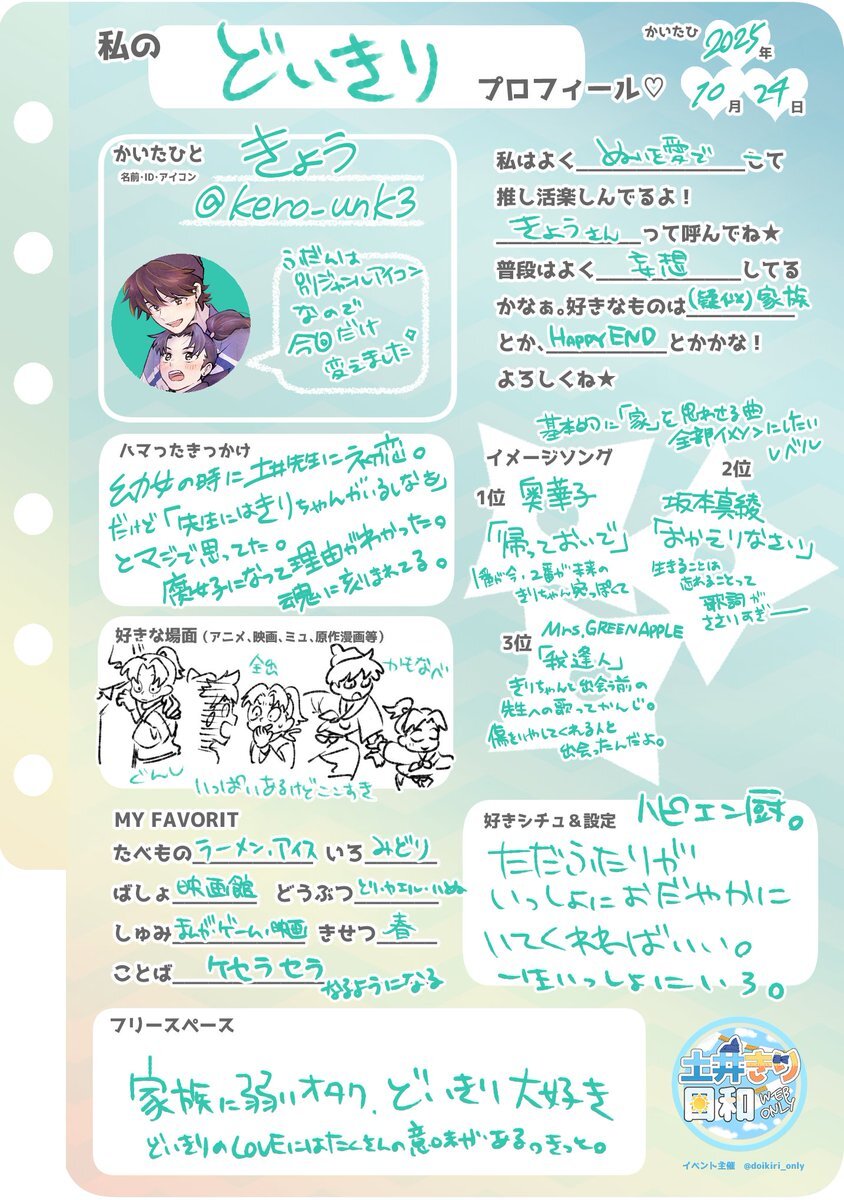 私の どいきり プロフィール♡
かいたひ 2025年
10月 24日
かいたひと きょう
名前・ID・アイコン
@kero_unk3
ふだんは
別ジャンルアイコン
なので
今回だけ
変えました
私はよく ぬいを愛で して
推し活楽しんでるよ！
きょうさん って呼んでね★
普段はよく 妄想 してる
かなぁ。好きなものは (疑似)家族
とか、HAPPY END とかかな！
よろしくね★
ハマったきっかけ
幼女の時に土井先生にネカ恋。
だけど「先生にはきりちゃんがいるしなぁ」
とマジで思ってた。
腐女子になって理由がわかった。
魂に刻まれてる。
基本的に「家」を思わせる曲
全部イメソンにしたい
レベル
イメージソング
1位 奥華子
「帰っておいで」
1番が今、2番が未来の
きりちゃん宛っぽくて
2位
坂本真綾
「おかえりなさい」
生きることは
忘れることって
歌詞が
ささりすぎ――
3位 Mrs. GREEN APPLE
「我逢人」
きりちゃんと出会う前の
先生への歌ってかんじ。
傷をいやしてくれる人と
出会ったんだよ。
好きな場面（アニメ、映画、ミュ、原作漫画等）
全出
かもなべ
ぐんし
いっぱいあるけどここすき
MY FAVORIT
たべもの ラーメン、アイス いろ みどり
ばしょ 映画館 どうぶつ とり・カエル・いぬ
しゅみ まんが・ゲーム・映画 きせつ 春
ことば ケセラセラ
なるようになる
好きシチュ＆設定 ハピエン厨。
ただふたりが
いっしょにおだやかに
いてくれればいい。
一生いっしょにいろ。
フリースペース
家族に弱いオタク、どいきり大好き
どいきりのLOVEにはたくさんの意味があるっきっと。
土井きり
日和
WEB
ONLY
イベント主催 @doikiri_only